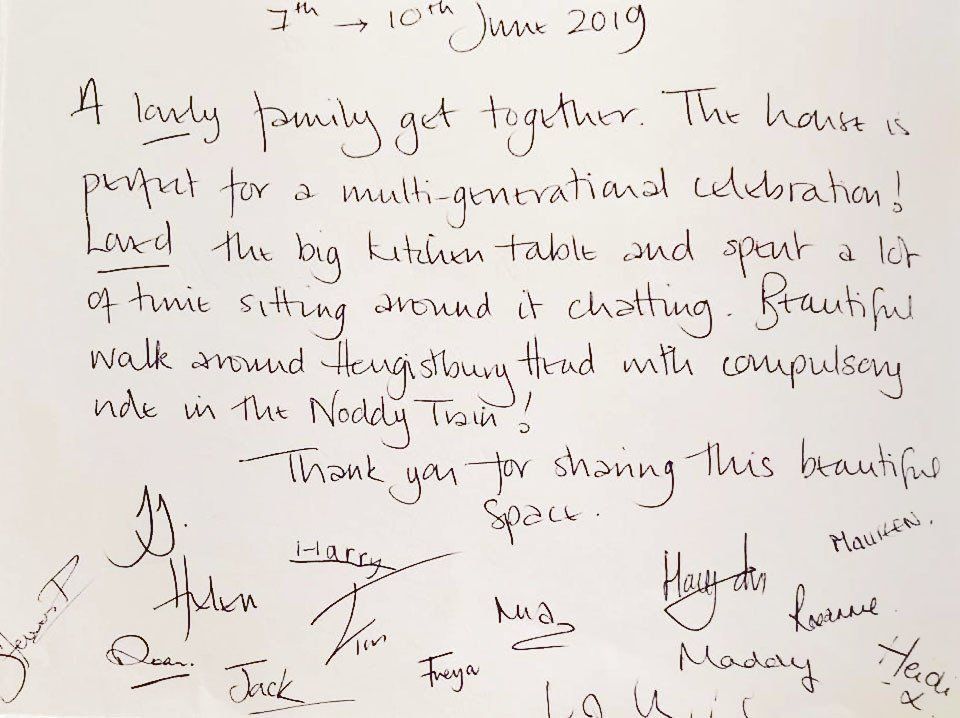 7th → 10th June 2019
A lovely family get together. The house is
perfect for a multi-generational celebration!
Loved the big kitchen table and spent a lot
of time sitting around it chatting. Beautiful
walk around Hengistbury Head with compulsory
ride in the Noddy Train!
Thank you for sharing this beautiful
space.
JJ.
Harry
Maureen.
Helen
Tim
Mia
Haydn
Roxanne
Jack
Freya
Maddy
Heidi
x